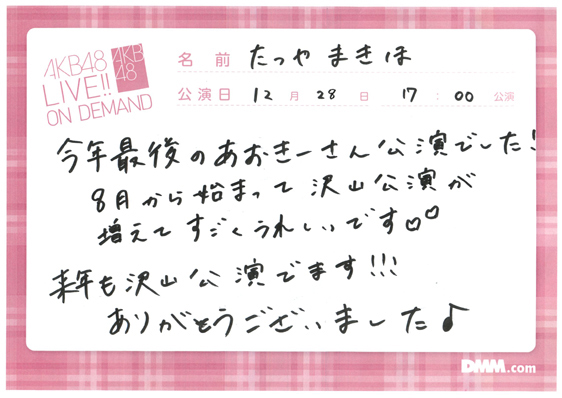 AKB48
LIVE!!
ON DEMAND
AKB
48
名前 たつや まきほ
公演日 12月28日 17:00 公演
今年最後のあおきーさん公演でした!
8月から始まって沢山公演が
増えてすごくうれしいです♡♡
来年も沢山公演でます!!!
ありがとうございました♪
DMM.com